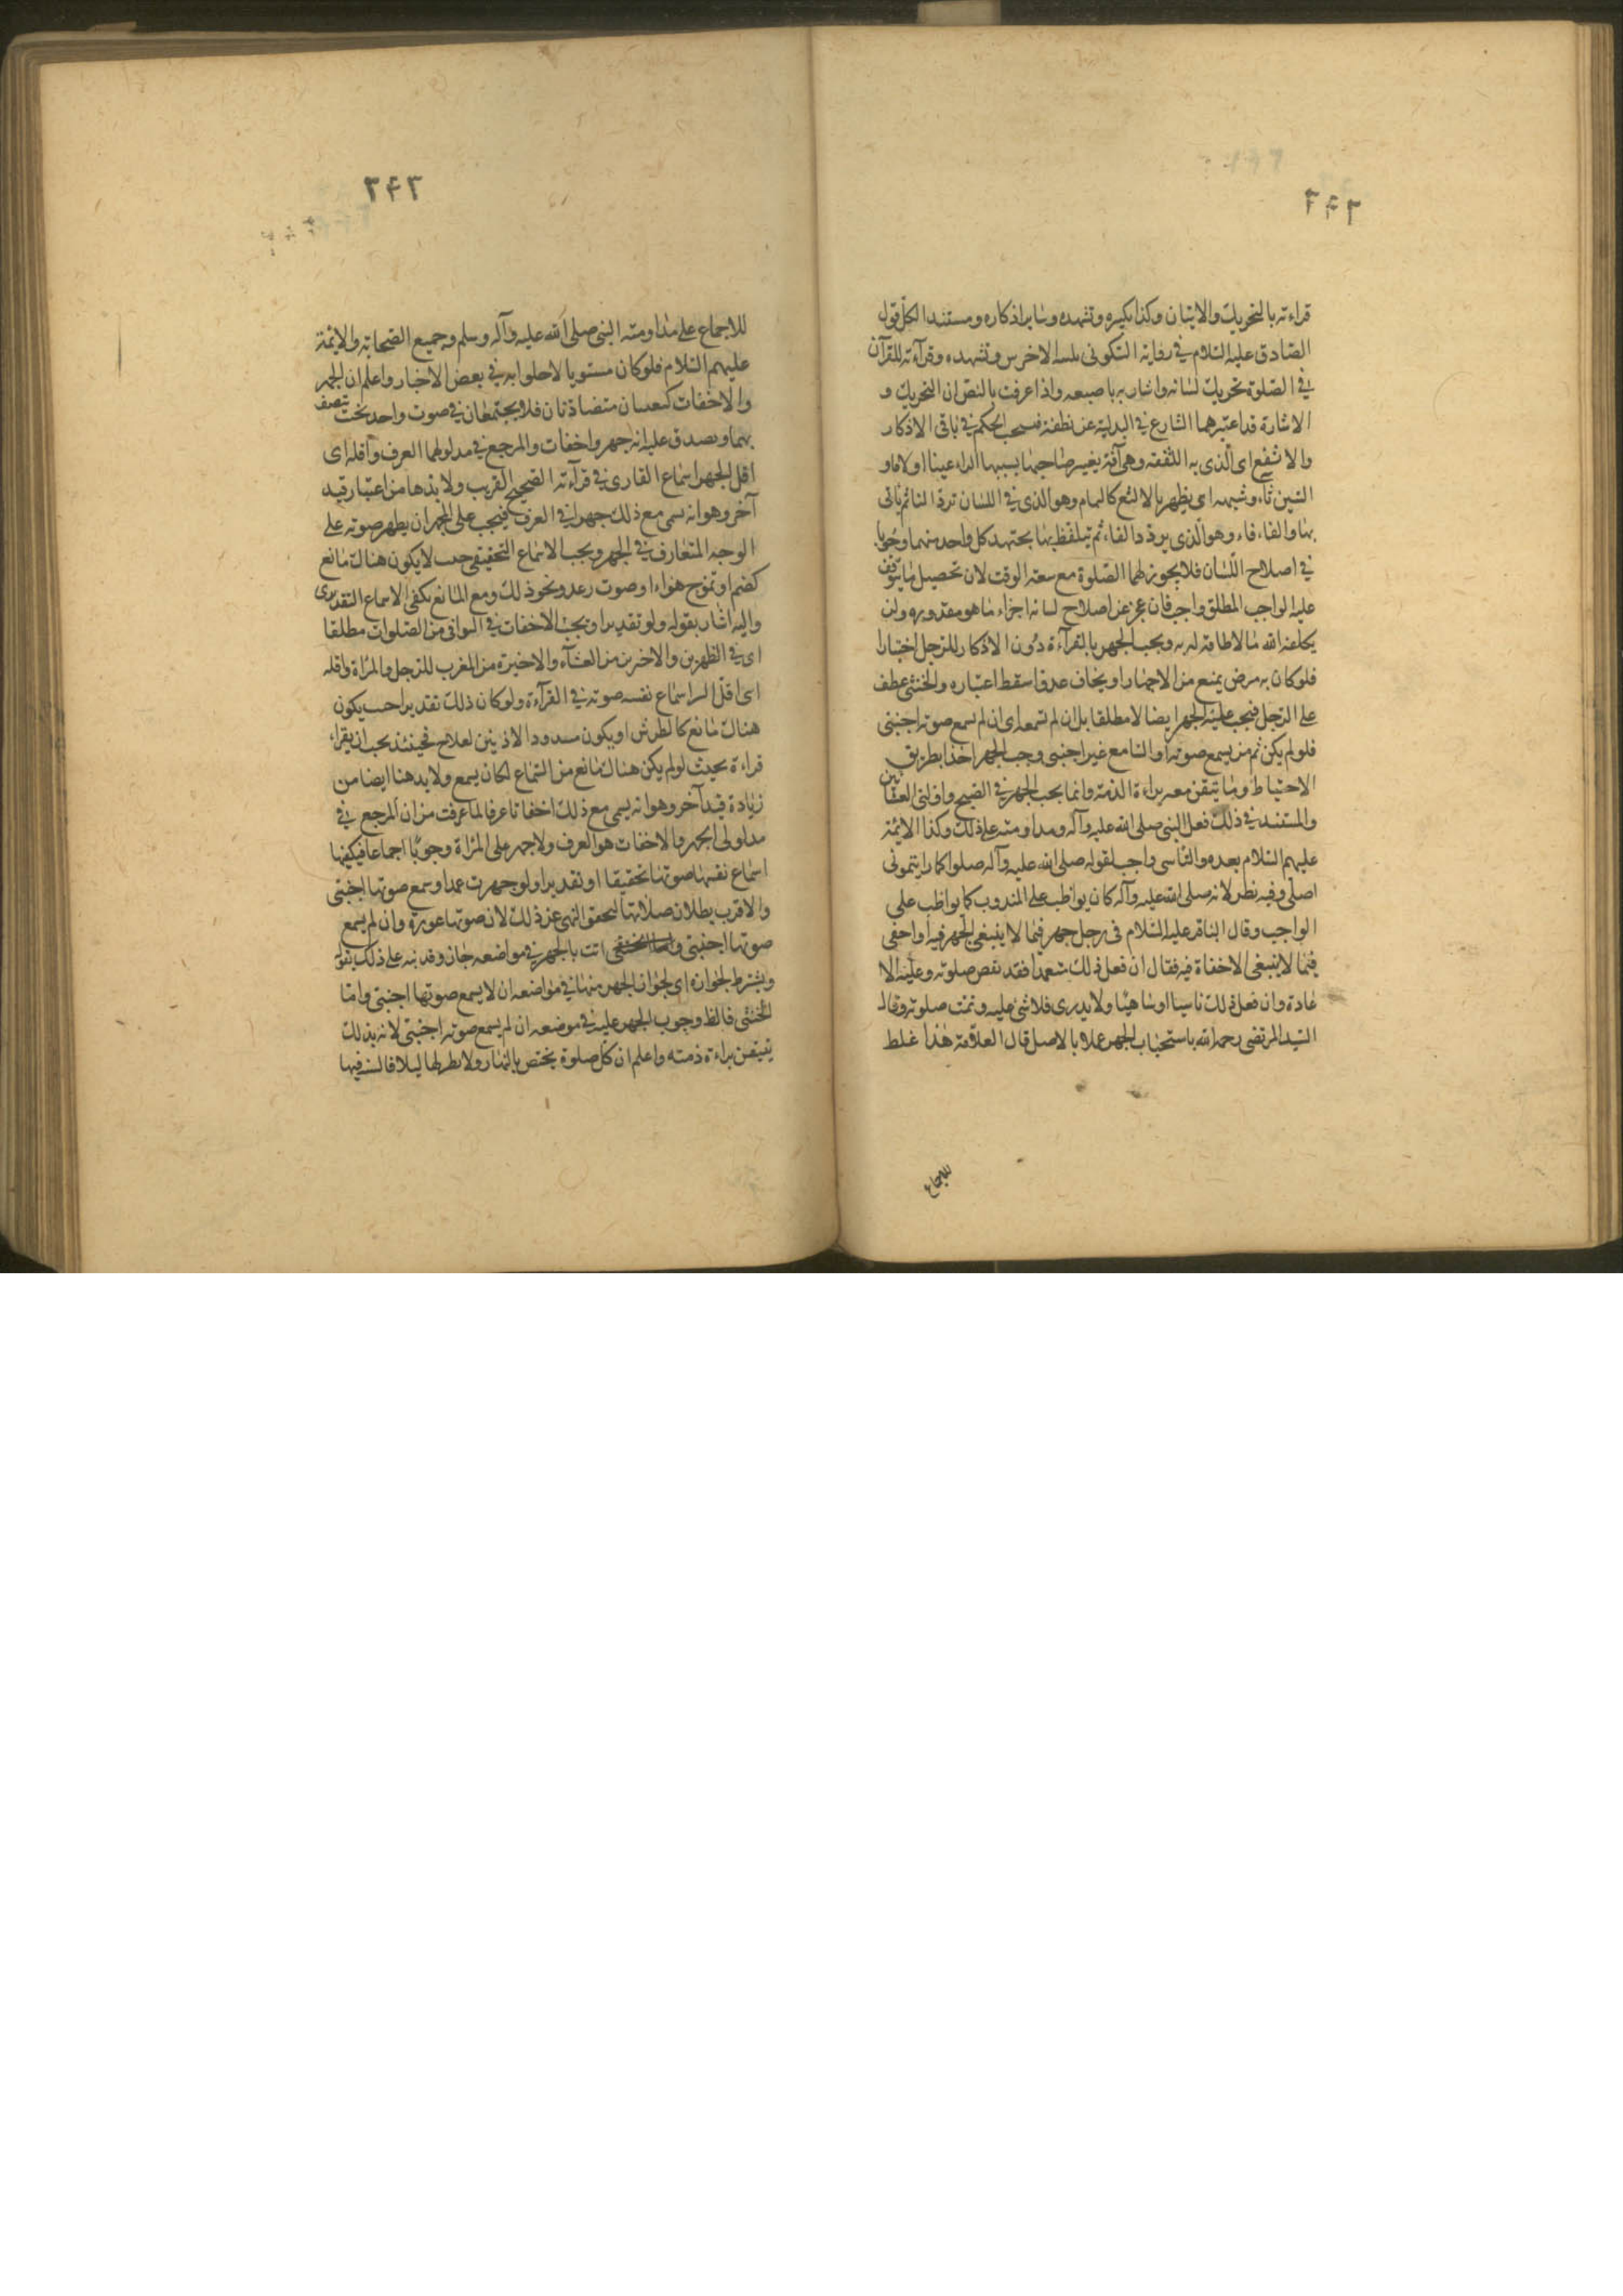 ٢٤٢
قراءته بالتحريك والاتيان وكذا تكبيره وتشهده وسايراذكاره ومستند الكل قول
الصادق عليه السلام في رواية السكوني تلبية الاخرس وتشهده وقرآءته للقرآن
في الصلوة تحريك لسانه واشارته باصبعه واذا عرفت بالنص ان التحريك و
الاشارة قد اعتبرهما الشارع في البدلية عن نطقه فيجب الحكم في باقى الاذكار
والالثغ اى الذى به اللثغة وهى آفة يغير صاحبها بسببها الراء عينا او لاما و
السين ثاء وشبهه اى يظهر بالالثغ كالتمتام وهو الذى في اللسان تردد التاء ثم ياتى
بها والفافاء وهو الذى يردد الفاء ثم يتلفظ بها يجتهد كل واحد منهما وجوبا
في اصلاح اللسان فلا يجوز لهما الصلوة مع سعة الوقت لان تحصيل ما يتوقف
عليه الواجب المطلق واجب فان عجز عن اصلاح لسانه اجزاء ما هو مقدوره ولن
يكلفه الله ما لا طاقة له به ويجب الجهر بالقرآءة دون الاذكار للرجل اختيارا
فلو كان به مرض يمنع من الاجهار او يخاف عدوا سقط اعتباره والخنثى عطف
على الرجل فيجب عليه الجهر ايضا لا مطلقا بل ان لم تسمعه اى ان لم يسمع صوته اجنبى
فلو لم يكن ثم من يسمع صوته او السامع غير اجنبى وجب الجهر اخذا بطريق
الاحتياط وبما يتيقن معه براءة الذمة وانما يجب الجهر في الصبح واولتى العشائين
والمستند في ذلك فعل النبى صلى الله عليه وآله ومداومته على ذلك وكذا الائمة
عليهم السلام بعده والتاسى واجب لقوله صلى الله عليه وآله صلوا كما رايتمونى
اصلى وفيه نظر لانه صلى الله عليه وآله كان يواظب على المندوب كما يواظب على
الواجب وقال الباقر عليه السلام فى رجل جهر فيما لا ينبغى الجهر فيه او اخفى
فيما لا ينبغى الاخفاة فيه فقال ان فعل ذلك متعمدا فقد نقص صلوته وعليه الا
عادة وان فعل ذلك ناسيا او ساهيا ولا يدرى فلا شئ عليه وتمت صلوته وقال
السيد المرتضى رحمه الله باستحباب الجهر عملا بالاصل قال العلامة هذا غلط
للاجماع
٢٤٣
للاجماع على مداومة النبى صلى الله عليه وآله وسلم وجميع الصحابة والائمة
عليهم السلام فلو كان مسنونا لاخلوا به في بعض الاخبار واعلم ان الجهر
والاخفات كيفيتان متضادتان فلا يجتمعان في صوت واحد بحيث يتصف
بهما ويصدق عليه انه جهر واخفات والمرجع في مدلولهما العرف واقله اى
اقل الجهر اسماع القارى في قرآءته الصحيح القريب ولا بد هنا من اعتبار قيد
آخر وهو انه يسمى مع ذلك جهرا في العرف فيجب على المجهر ان يظهر صوته على
الوجه المتعارف في الجهر ويجب الاسماع التحقيقى حيث لا يكون هناك مانع
كصمم او تموج هواء او صوت رعد ونحو ذلك ومع المانع يكفى الاسماع التقديرى
واليه اشار بقوله ولو تقديرا ويجب الاخفات في البواقى من الصلوات مطلقا
اى في الظهرين والاخرين من العشآء والاخيرة من المغرب للرجل والمراة واقله
اى اقل السر اسماع نفسه صوته في القرآءة ولو كان ذلك تقديرا حيث يكون
هناك مانع كالطرش او يكون مسدود الاذنين لعلاج فحينئذ يجب ان يقراء
قراءة بحيث لو لم يكن هناك مانع من السماع لكان يسمع ولا بد هنا ايضا من
زيادة قيد آخر وهو انه يسمى مع ذلك اخفاتا عرفا لما عرفت من ان المرجع في
مدلولى الجهر والاخفات هو العرف ولا جهر على المراة وجوبا اجماعا فيكفيها
اسماع نفسها صوتها تحقيقا او تقديرا ولو جهرت عمدا وسمع صوتها اجنبى
والاقرب بطلان صلاتها لتحقق النهى عن ذلك لان صوتها عورة وان لم يسمع
صوتها اجنبى واتت بالجهر في مواضعه جاز وقد نبه على ذلك بقوله
ويشترط لجوازه اى لجواز الجهر منها في مواضعه ان لا يسمع صوتها اجنبى واما
الخنثى فالظ وجوب الجهر عليه في موضعه ان لم يسمع صوته اجنبى لانه بذلك
يتيقن براءة ذمته واعلم ان كل صلوة يختص بالنهار ولا نظير لها ليلا فالسنة فيها